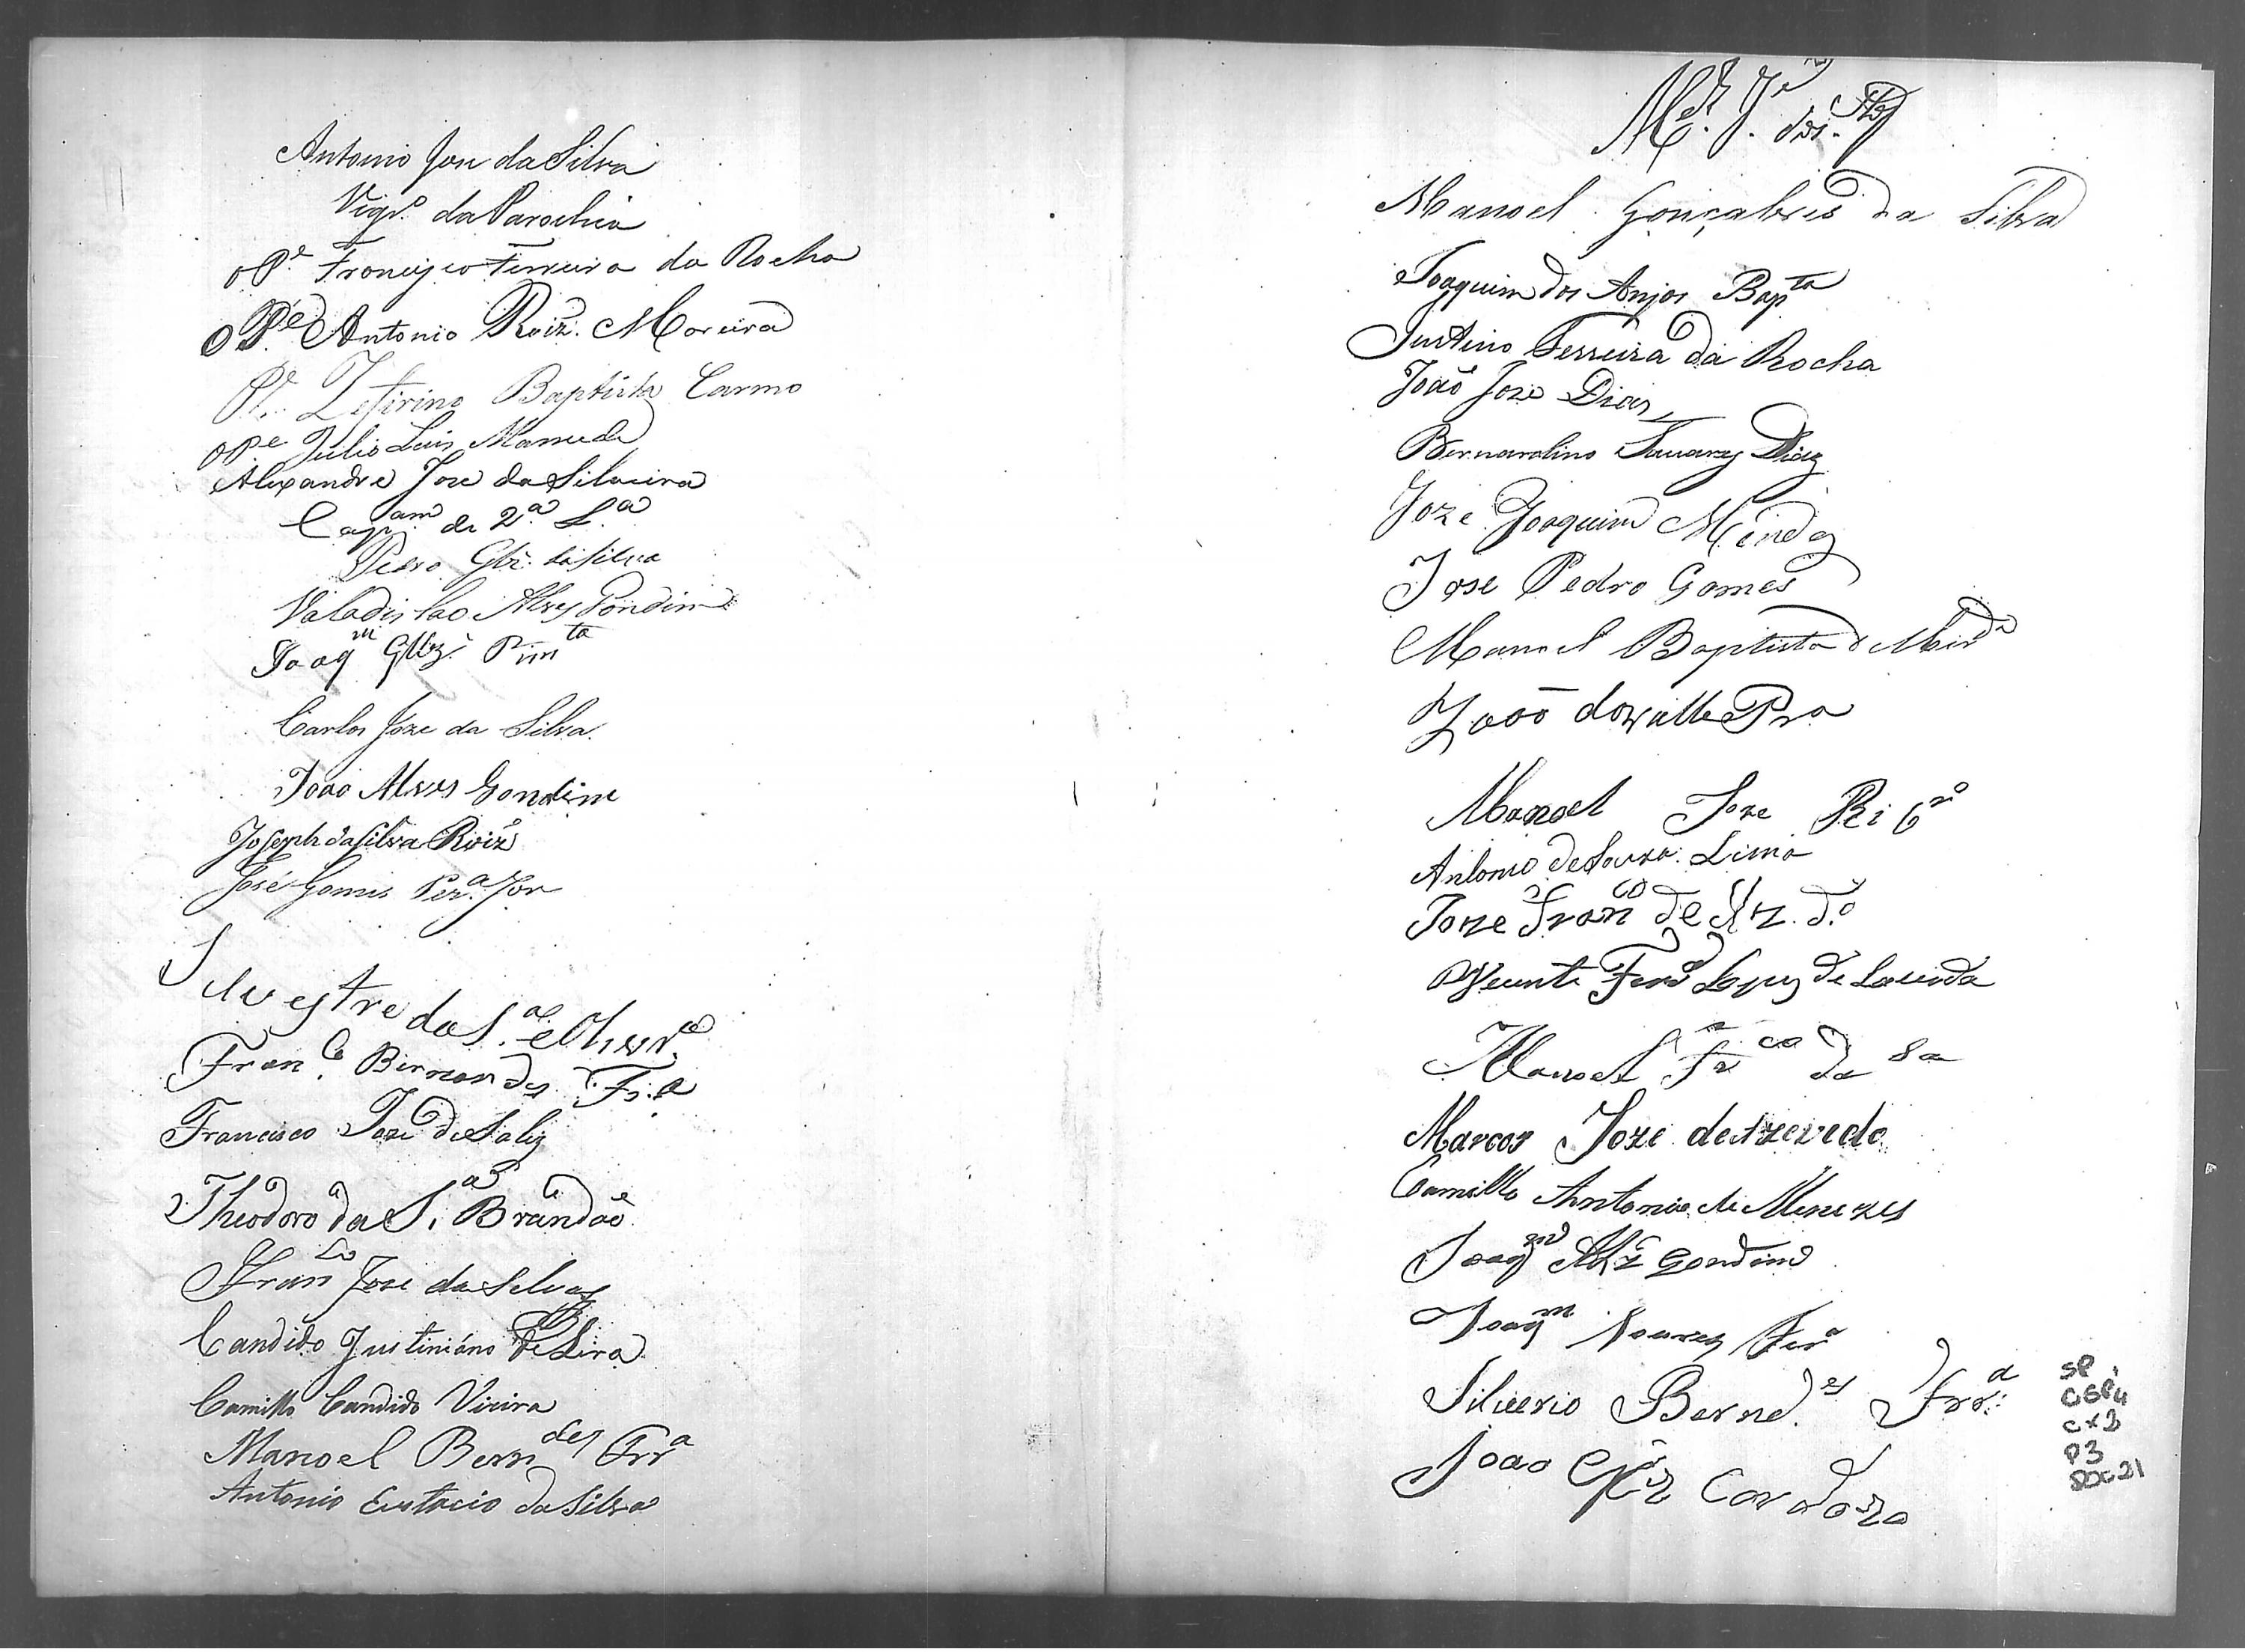 Antonio Jose da Silva
Vigr.º da Parochia
o P.e Francisco Ferreira da Rocha
O P.e Antonio Roiz. Moreira
P.e Zefirino Baptista Carmo
o P.e Julio Luis Mamede
Alexandre Jose da Silveira
Cap.am de 2.a L.a
Pedro Glz. da Silva
Valadislao Alves Gondim
Joaqm Glz. Pimta
Carlos Joze da Silva.
João Alves Gondim
Joseph da Silva Roiz
José Gomes Per.a Jor
Silvestre da S.a e Olivra
Fran.co Bernardes Fr.a
Francisco Joze de Salis
Theodoro da S.a Brandão
Franco Joze da Silva
Candido Justiniáno de Lira
Camillo Candido Vieira
Manoel Berndes Frra
Antonio Eustacio da Silva
Mel. J. dos
Manoel Gonçalves da Silva
Joaquim dos Anjos Bapta
Justino Ferreira da Rocha
João Joze Dias
Bernardino Tavares Dias
Joze Joaquim Mendes
Jose Pedro Gomes
Manoel Baptista de Mirda
João do Valle Pra
Manoel Joze Ribro
Antonio de Souza Lima
Joze Franco de Az.do
Vicente Ferra Lopes de Lacerda
Manoel Frco da Sa
Marcos Joze de Azevedo
Camillo Antonio de Menezes
Joaqm Alz Gondim
Joaqm Soares Fera
Silverio Berned.es Frra
Joao Cardozo
SP
CGP4
CX2
P3
DOC21